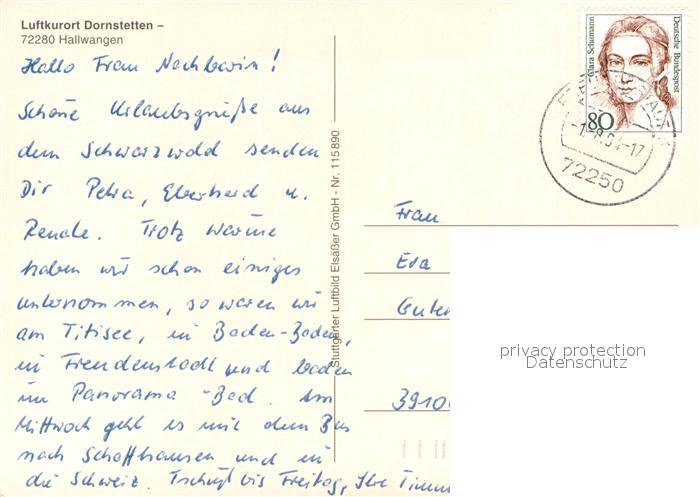 Luftkurort Dornstetten –
72280 Hallwangen
Hallo Frau Nachbarin!
Schöne Urlaubsgrüße aus
dem Schwarzwald senden
Dir Petra, Eberhard u.
Renate. Trotz Wärme
haben wir schon einiges
unternommen, so waren wir
am Titisee, in Baden-Baden,
in Freudenstadt und baden
im Panorama-Bad. Am
Mittwoch geht es mit dem Bus
nach Schaffhausen und in
die Schweiz. Tschüß bis Freitag, Ihre Timm
Stuttgarter Luftbild Elsäßer GmbH - Nr. 115 890
Clara Schumann
Deutsche Bundespost
80
-17
72250
Frau
Eva
Guten
3910
privacy protection
Datenschutz